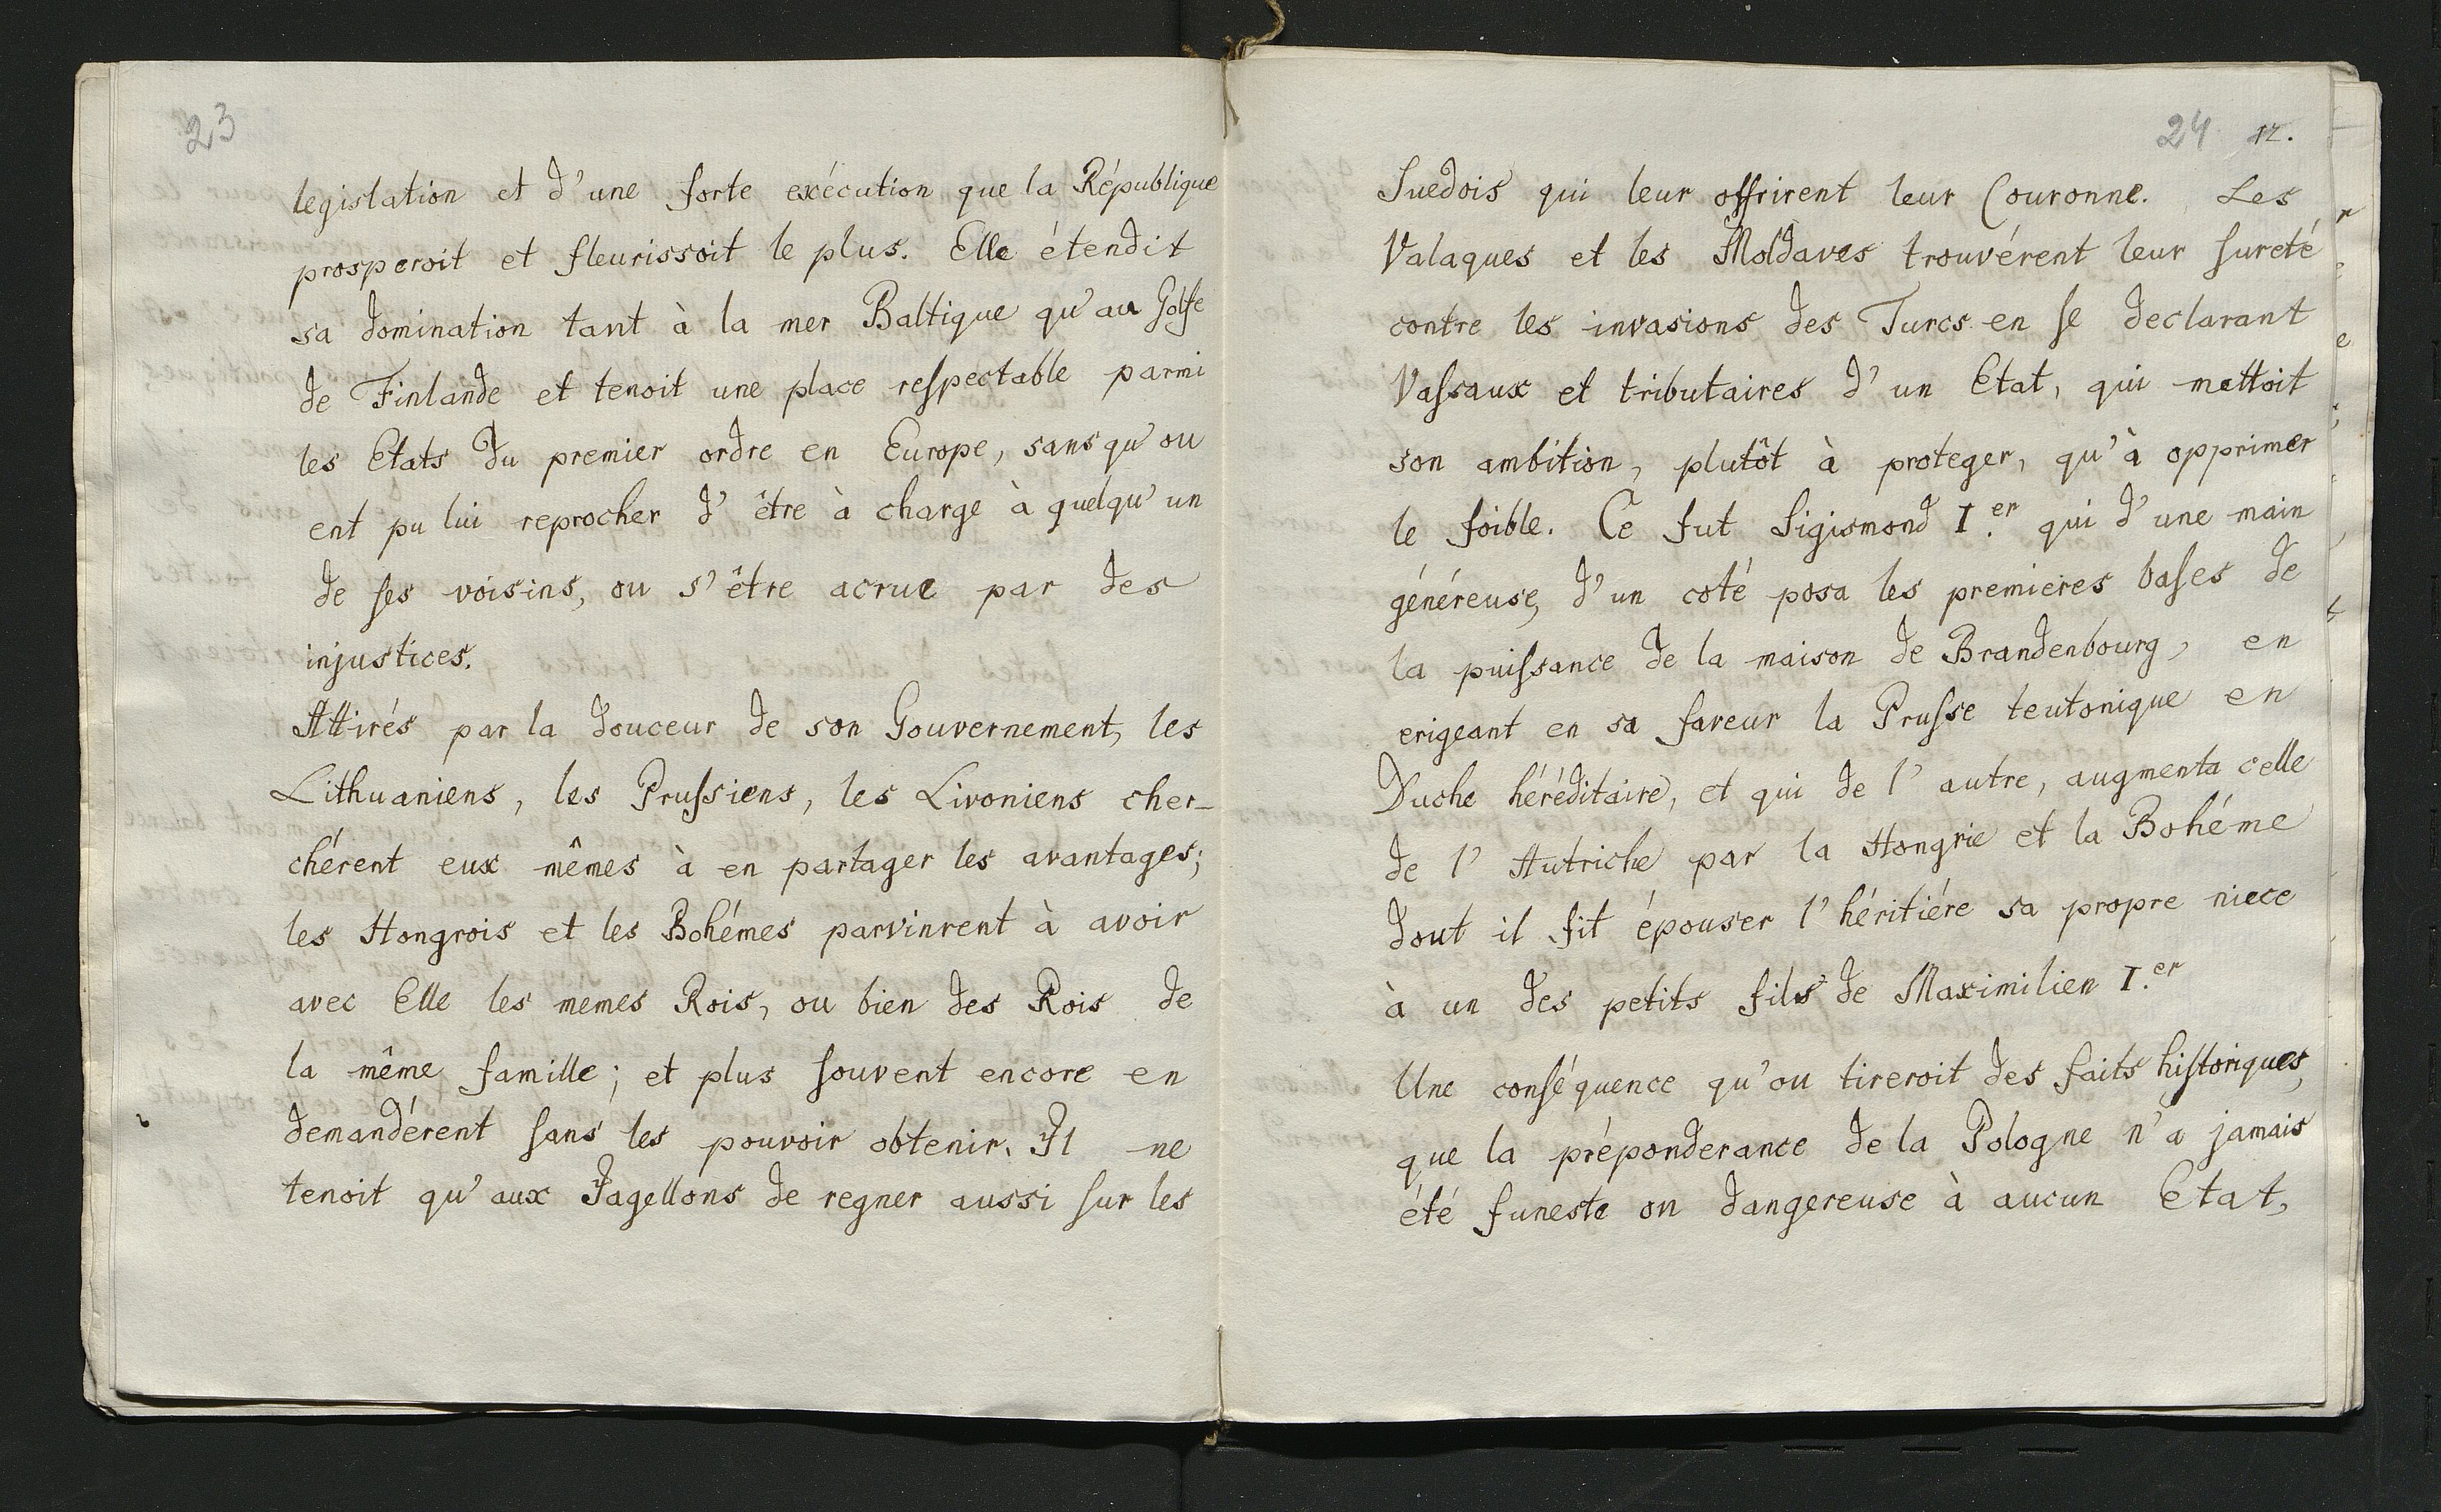 23
legislation et d'une forte exécution que la République
prosperoit et fleurissoit le plus. Elle étendit
sa domination tant à la mer Baltique qu'au Golfe
de Finlande et tenoit une place respectable parmi
les Etats du premier ordre en Europe, sans qu'ou
ent pu lui reprocher d'être à charge à quelqu'un
de ses voisins, ou s'être acrue par des
injustices.
Attirés par la douceur de son Gouvernement, les
Lithuaniens, les Prussiens, les Livoniens cher-
chérent eux mêmes à en partager les avantages;
les Hongrois et les Bohémes parvinrent à avoir
avec Elle les memes Rois, ou bien des Rois de
la même famille; et plus souvent encore en
demandérent sans les pouvoir obtenir. Il ne
tenoit qu'aux Jagellons de regner aussi sur les
24 12.
Suedois qui leur offrirent leur Couronne. Les
Valaques et les Moldaves trouvérent leur sureté
contre les invasions des Turcs en se declarant
Vassaux et tributaires d'un Etat, qui mettoit
son ambition, plutôt à proteger, qu'à opprimer
le foible. Ce fut Sigismond I.er qui d'une main
généreuse, d'un coté posa les premieres bases de
la puissance de la maison de Brandenbourg, en
erigeant en sa faveur la Prusse teutonique en
Duche héréditaire, et qui de l'autre, augmenta celle
de l'Autriche par la Hongrie et la Bohéme
dout il fit épouser l'héritiére sa propre niece
à un des petits fils de Maximilien I.er
Une conséquence qu'ou tireroit des faits historiques,
que la préponderance de la Pologne n'a jamais
été funeste on dangereuse à aucun Etat,